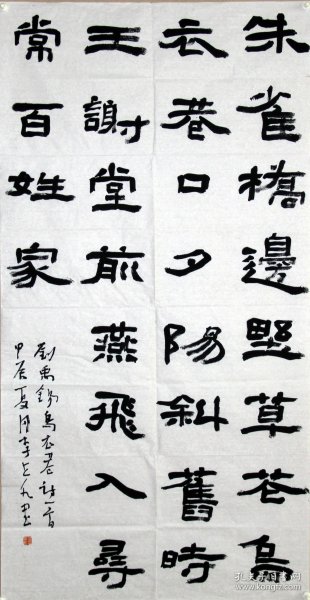 朱雀橋邊野草花烏
衣巷口夕陽斜舊時
王謝堂前燕飛入尋
常百姓家
劉禹錫烏衣巷詩一首
甲辰夏月